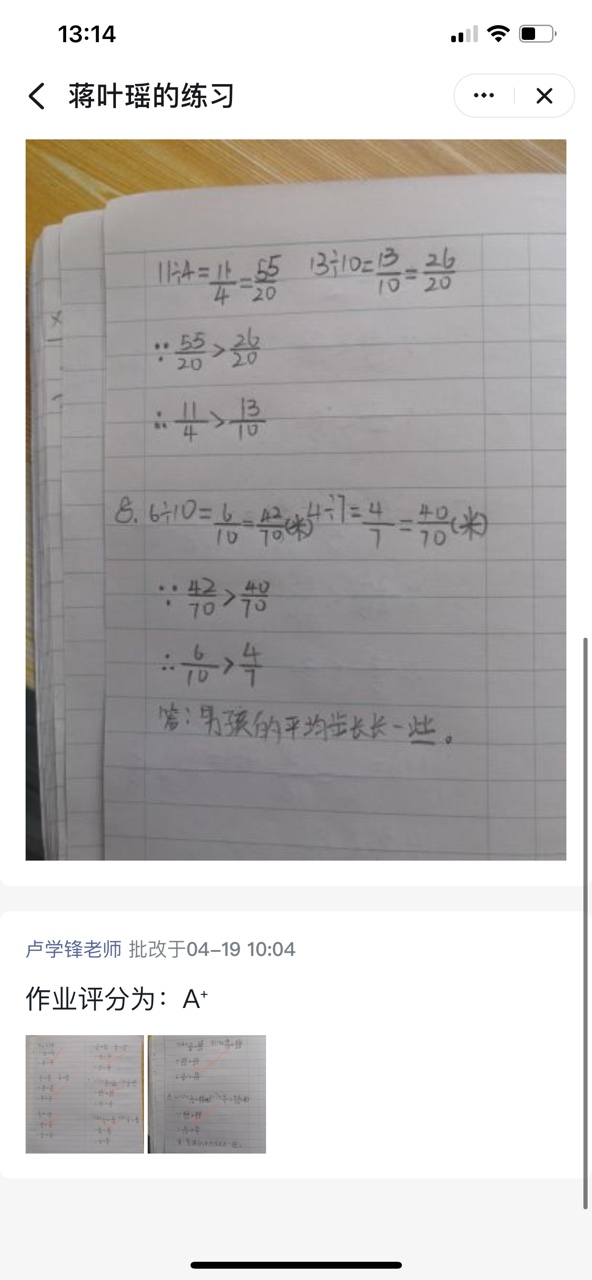 13:14
蒋叶瑶的练习
11÷4=11/4=55/20 13÷10=13/10=26/20
∵55/20>26/20
∴11/4>13/10
8. 6÷10=6/10=42/70(米) 4÷7=4/7=40/70(米)
∵42/70>40/70
∴6/10>4/7
答:男孩的平均步长长一些。
卢学锋老师 批改于04-19 10:04
作业评分为:A⁺